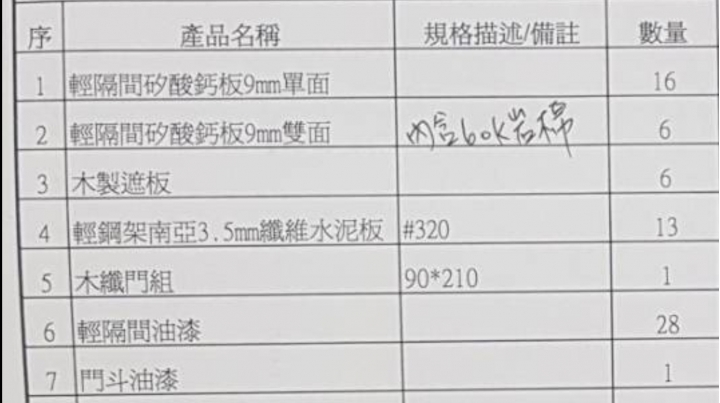 序 產品名稱 規格描述/備註 數量
1 輕隔間矽酸鈣板9mm單面 16
2 輕隔間矽酸鈣板9mm雙面 內含60K岩棉 6
3 木製遮板 6
4 輕鋼架南亞3.5mm纖維水泥板 #320 13
5 木纖門組 90*210 1
6 輕隔間油漆 28
7 門斗油漆 1